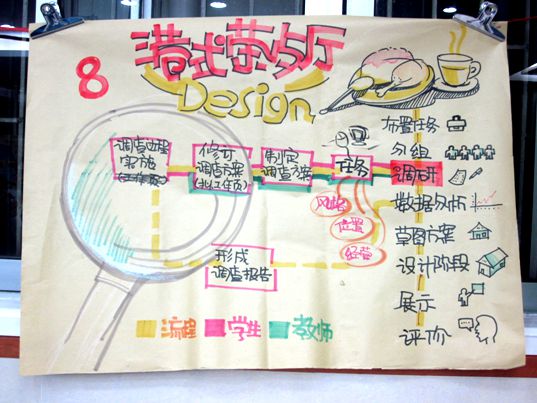 港式茶点厅
Design
8
布置任务
分组
调查过程
实施
修订
调查方案
制定
调查方案
任务
调研
风格
位置
经营
数据分析
草图方案
设计阶段
展示
评价
形成
调查报告
流程
学生
教师